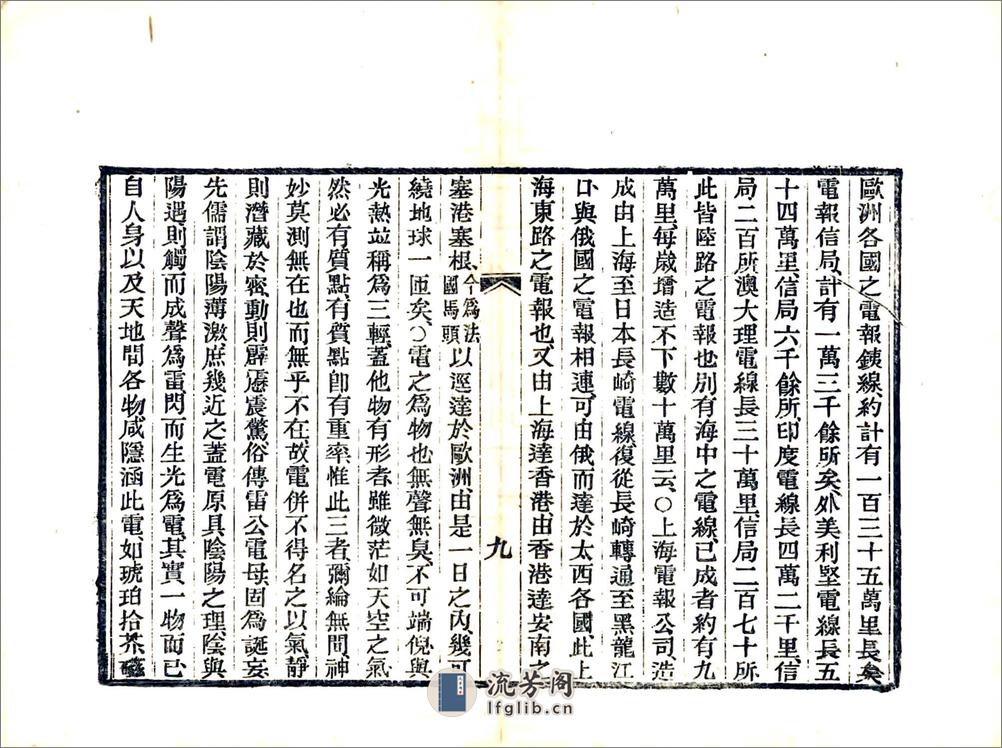 歐洲各國之電報鐵線約計有一百三十五萬里長矣
電報信局、計有一萬三千餘所矣、外美利堅電線長五
十四萬里、信局六千餘所、印度電線長四萬二千里、信
局二百所、澳大理電線長三十萬里、信局二百七十所、
此皆陸路之電報也、別有海中之電線、已成者約有九
萬里、每歲增造不下數十萬里云、○上海電報公司、造
成由上海至日本長崎電線、復從長崎轉通至黑龍江
口、與俄國之電報相連、可由俄而達於太西各國、此上
海東路之電報也、又由上海達香港、由香港達安南之
九
塞港塞根、今爲法國馬頭以逕達於歐洲、由是一日之內、幾可
繞地球一匝矣、○電之爲物也、無聲無臭、不可端倪、與
光熱竝稱爲三輕、蓋他物有形者、雖微茫如天空之氣
然必有質點、有質點卽有重率、惟此三者、彌綸無間、神
妙莫測、無在也而無乎不在、故電併不得名之以氣、靜
則潛藏於密、動則霹靂震驚、俗傳雷公電母、固爲誕妄
先儒謂陰陽薄激、庶幾近之、蓋電原具陰陽之理、陰與
陽遇、則觸而成聲爲雷、閃而生光爲電、其實一物而已
自人身以及天地間各物、咸隱涵此電、如琥珀拾芥、磁
流芳阁
lfglib.cn